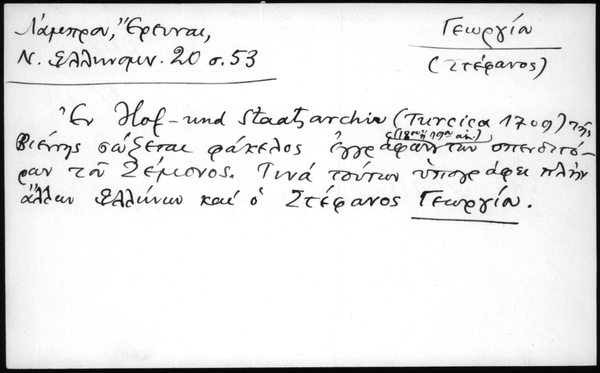 Λάμπρου, Ἔρευναι,
Ν. Ἑλληνομν. 20 σ. 53
Γεωργία
(Στέφανος)
Ἐν Hof-und Staatsarchiv (Turcica 1709) τῆς
(18ου ἢ 19ου αἰ.)
Βιέννης σώζεται φάκελος ἐγγράφων τῶν σπενδιτό-
ρων τοῦ Σέμισνος. Τινά τούτων ὑπογράφει πλήν
ἄλλων Ἑλλήνων καί ὁ Στέφανος Γεωργία.